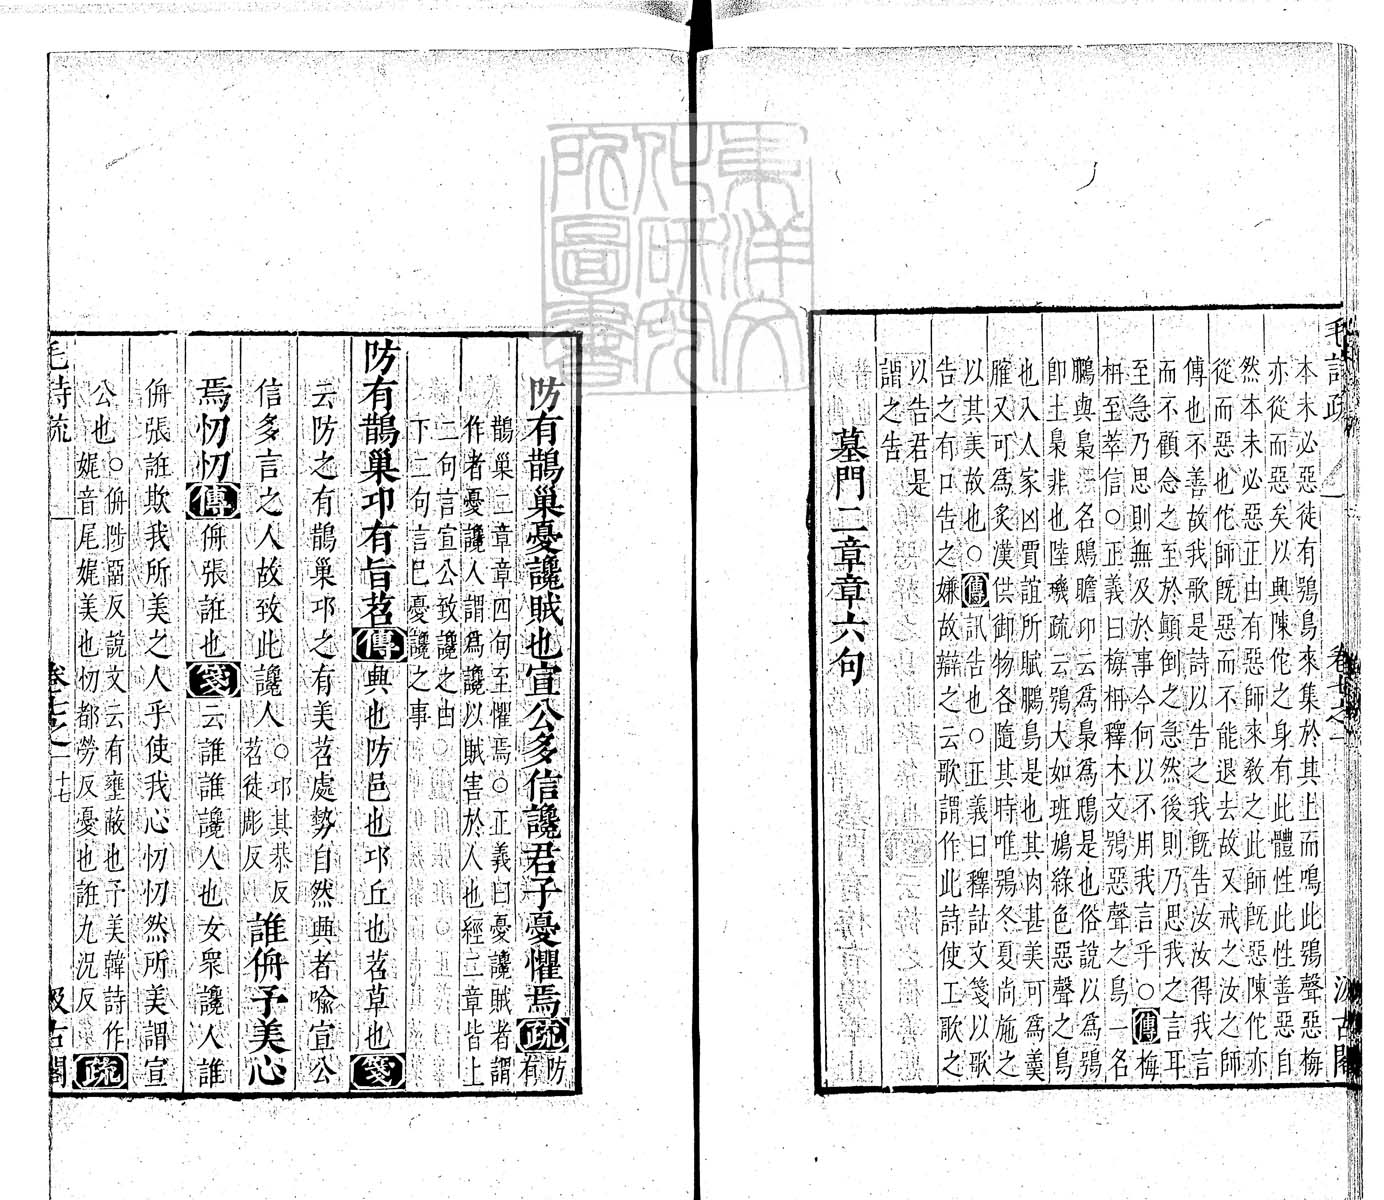 毛詩疏
卷七之一
汲古閣
本未必惡徒有鴞鳥來集於其上而鳴此鴞聲惡梅
亦從而惡矣以興陳佗之身有此體性此性善惡自
然本未必惡正由有惡師來敎之此師旣惡陳佗亦
從而惡也佗師旣惡而不能退去故又戒之汝之師
傅也不善故我歌是詩以告之我旣告汝汝得我言
而不顧念之至於顚倒之急然後則乃思我之言耳
至急乃思則無及於事今何以不用我言乎○傳梅
柟至萃信○正義曰梅柟釋木文鴞惡聲之鳥一名
鵩與梟一名鴟瞻卬云爲梟爲鴟是也俗說以爲鴞
卽土梟非也陸璣疏云鴞大如班鳩綠色惡聲之鳥
也入人家凶賈誼所賦鵩鳥是也其肉甚美可爲羹
臛又可爲炙漢供御物各隨其時唯鴞冬夏尚施之
以其美故也○傳訊告也○正義曰釋詁文箋以歌
告之有口告之嫌故辯之云歌謂作此詩使工歌之
以告君是
謂之告
墓門二章章六句
防有鵲巢憂讒賊也宣公多信讒君子憂懼焉疏防有
鵲巢二章章四句至懼焉○正義曰憂讒賊者謂
作者憂讒人謂爲讒以賊害於人也經二章皆上
二句言宣公致讒之由
下二句言已憂讒之事
防有鵲巢卭有旨苕傳興也防邑也邛丘也苕草也箋
云防之有鵲巢邛之有美苕處勢自然興者喩宣公
信多言之人故致此讒人○邛其恭反苕徒彫反誰侜予美心
焉忉忉傳侜張誑也箋云誰誰讒人也女衆讒人誰
侜張誑欺我所美之人乎使我心忉忉然所美謂宣
公也○侜陟留反說文云有壅蔽也予美韓詩作
娓音尾娓美也忉都勞反憂也誑九況反疏
毛詩疏
卷七之一
十七
汲古閣